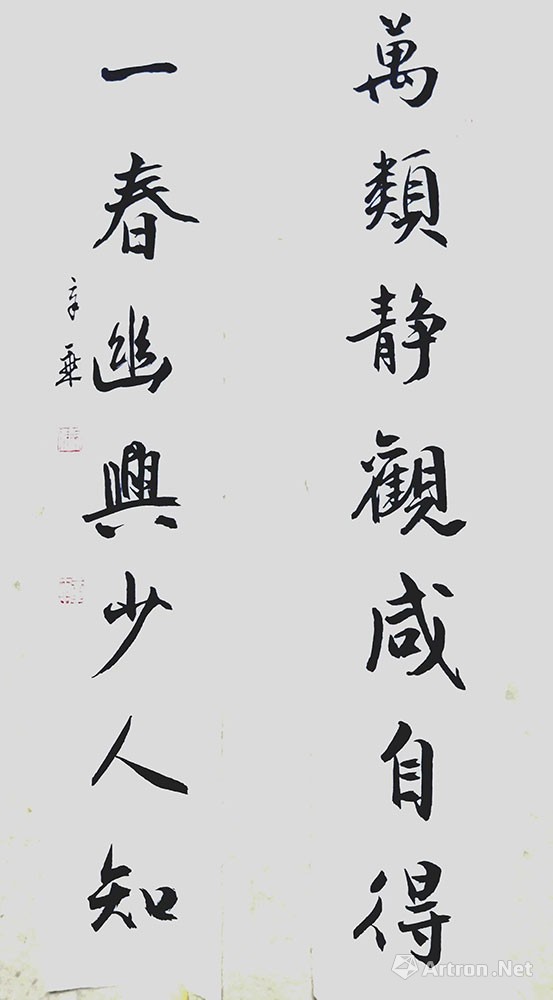 萬類静觀咸自得
一春幽興少人知
Artron.Net